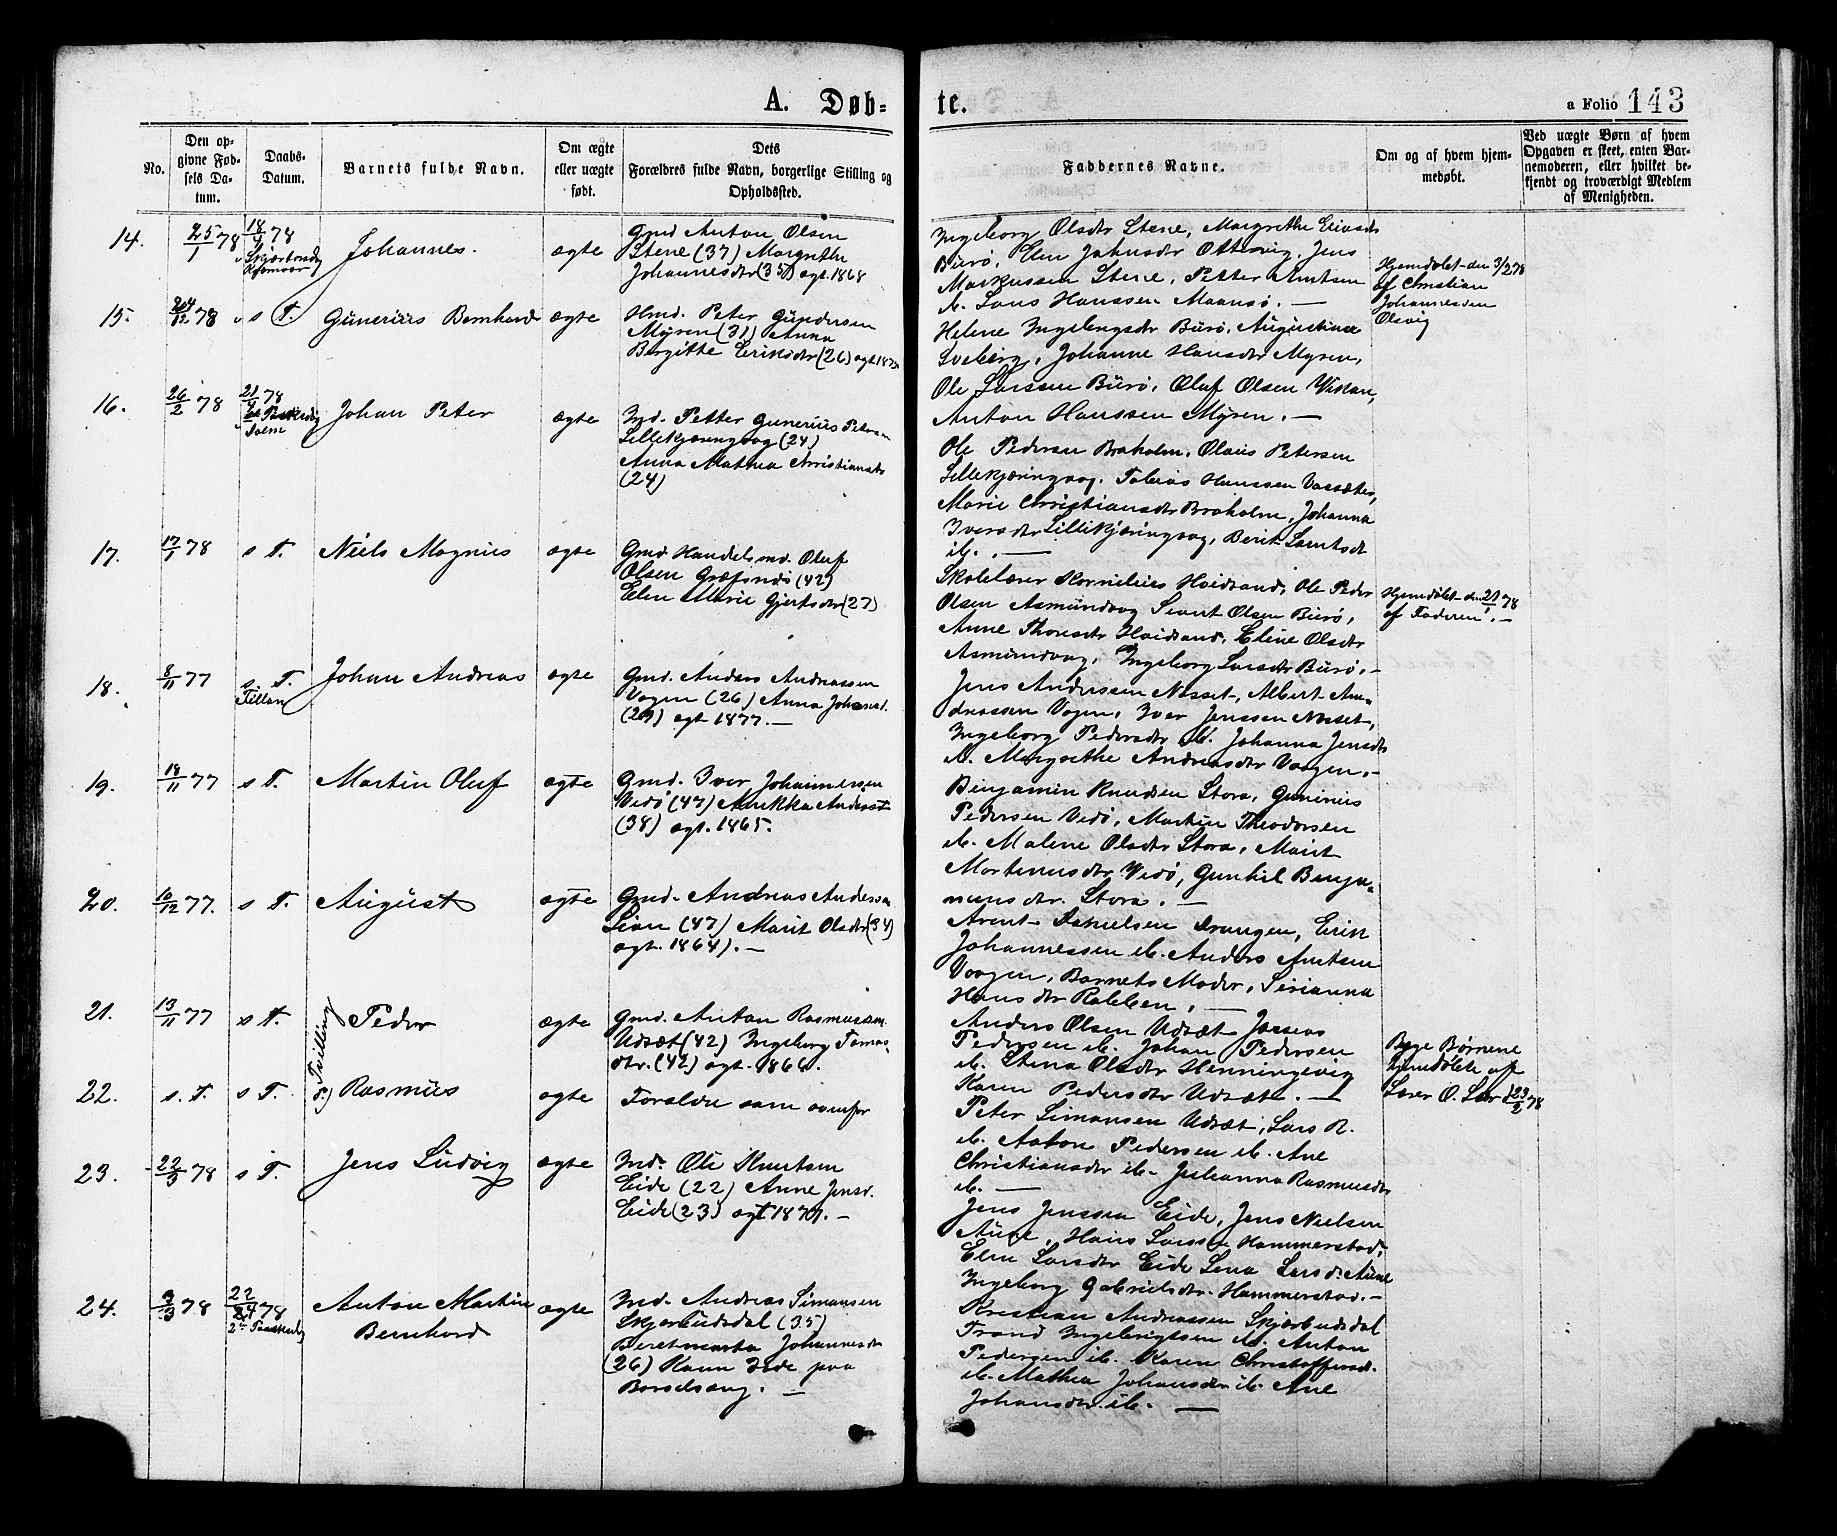 A. Døb=
te.
a Folio 143
No.
Den op-
givne Fød-
sels Da-
tum.
Daabs-
Datum.
Barnets fulde Navn.
Om ægte
eller uægte
født.
Dets
Forældres fulde Navn, borgerlige Stilling og
Opholdssted.
Faddernes Navne.
Om og af hvem hjem-
medøbt.
Ved uægte Børn af hvem
Opgaven er skeet, enten Bar-
nemoderen, eller hvilket be-
kjendt og troværdigt Medlem
af Menigheden.
14.
25/1 78
18/4 78
Johannes.
ægte
Gmd Anton Olsen
Stene (37) Margrethe
Johannesdtr (35) ægt. 1868
Ingeborg Olsdtr Stene, Margrethe Eriksdtr
Burø, Elen Johnsdtr Ottervig, Jens
Markussen Stene, Petter Arntsen
ib. Lars Hanssen Maansø. —
Hjemdøbt den 3/2 78
af Christian
Johannessen
Olsvig
15.
24/12 78
s T.
Gunerius Bernhard
ægte
Hmd. Peter Gundersen
Myren (31) Anna
Birgitte Eriksdtr (26) ægt.
Helene Ingebrigtsdtr Burø, Augustinae
Sveberg, Johanne Hansdtr Myren,
Ole Larssen Burø, Oluf Olsen Viktan,
Anton Hanssen Myren. —
16.
26/2 78
21/4 78
Johan Peter
ægte
Ind. Petter Gunerius Peters
Lillekjæringvaag (24)
Anna Mathea Christiansdtr
(24)
Ole Pedersen Braholm, Olaus Petersen
Lillekjæringvaag, Tobias Hanssen Vassæter,
Marie Christiansdtr Braholm, Johanna
Iversdtr Lillekjæringvaag, Berit Larntsdt
ib. —
17.
17/1 78
s T.
Niels Magnus
ægte
Gmd. Handelsmd. Oluf
Olsen Græfsnæs (42)
Elen Marie Gjertsdtr (27)
Skolelærer Kornelius Hvidsand, Ole Peder
Olsen Asmundvag Sivert Olsen Burø,
Anne Thoresdtr Hvidsand, Eline Olsdtr
Asmundvag, Ingeborg Larsdtr Burø. —
Hjemdøbt d. 21/1 78
af Faderen. —
18.
8/11 77
s. T.
Tillan
Johan Andreas
ægte
Gmd. Anders Andreassen
Vagen (26) Anna Johansd.
(29) ægt 1877. —
Jens Anderssen Nesset, Albert An-
dreassen Vagen, Iver Jenssen Nesset,
Ingeborg Pedersdtr ib. Johanna Jensdtr
ib. Margrethe Andreasdtr Vaagen. —
19.
18/11 77
s T.
Martin Oluf
ægte
Gmd. Iver Johannessen
Vedø (47) Anikka Andersd
(38) ægt. 1865.
Benjamin Knudsen Stora, Gunerius
Pedersen Vedø, Martin Theodorsen
ib. Malene Olsdtr Stora, Marit
Mortensdtr Vedø, Gunhil Benja-
minsdtr. Stora. —
20.
10/12 77.
s T.
August
ægte
Gmd. Andreas Anderssn
Lian (47) Marit Olsdtr (34)
ægt. 1864). —
Arent Danielsen Drangen, Erik
Johannessen ib. Anders Arntsen
Vaagen, Barnets Moder, Sirianna
Hansdtr Rabben, —
21.
13/11 77
s T.
Tvilling
Peder
ægte
Gmd. Anton Rasmussen
Udsæt (42) Ingeborg Tomas-
dtr. (42) ægt. 1866.
Anders Olsen Udsæt Jassias
Pedersen ib. Johan Pedersen
ib. Stina Olsdtr Henningevig
Karen Pedersdtr Udsæt. —
Begge Børnene
hjemdøbte af
Lærer O. 23/2 78
22.
s. T.
s T.
Rasmus
ægte
Forældre som ovenfor
Peter Simonsen Udsæt, Lars R.
ib. Anton Pedersen ib. Ane
Christiansdtr ib. Julianna Rasmusdtr
ib. —
23.
22/3 78
s T.
Jens Ludvig
ægte
Ind. Ole Knutsen
Eide (22) Anne Jensd.
Eide (23) ægt 1877. —
Jens Jenssen Eide, Jens Nielsen
Aune, Hans Larssen Hammerstad,
Elen Larsdtr Eide Lena Larsd. Aune
Ingeborg Gabrielsdtr. Hammerstad. —
24.
3/3 78
22/4 78
2den Paaskedg
Anton Martin
Bernhard
ægte
Ind. Andreas Simonsen
Skjærbudsdal (35)
Beretmarta Johannesdtr
(26) Kaun Inde paa
Borselsang. —
Kristian Andreassen Skjærbudsdal
Trond Ingebrigtsen ib. Anton
Pedersen ib. Karen Christoffersd.
ib. Mathea Johansdtr ib. Ane
Johansdtr. ib. —